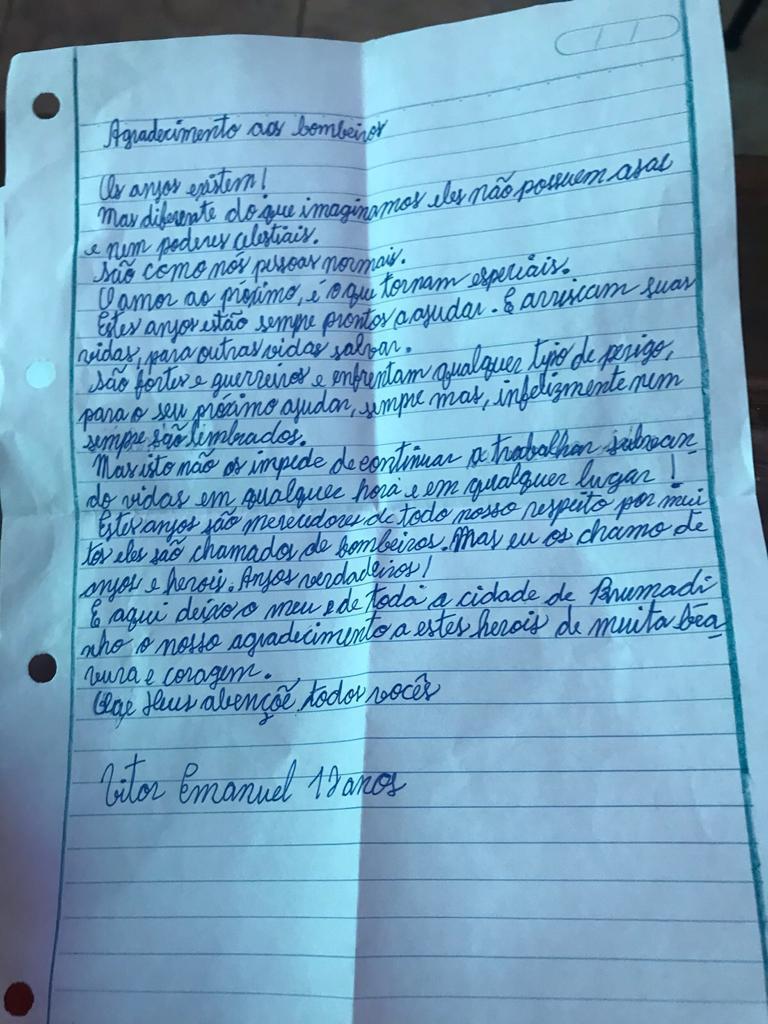 Agradecimento aos bombeiros
Os anjos existem!
Mas diferente do que imaginamos eles não possuem asas
e nem poderes celestiais.
São como nós pessoas normais.
O amor ao próximo, é o que tornam especiais.
Estes anjos estão sempre prontos a ajudar. E arriscam suas
vidas, para outras vidas salvar.
São fortes e guerreiros e enfrentam qualquer tipo de perigo,
para o seu próximo ajudar, sempre mas, infelizmente nem
sempre são lembrados.
Mas isto não os impede de continuar a trabalhar salvan
do vidas em qualquer hora e em qualquer lugar!
Estes anjos são merecedores de todo nosso respeito por mui
tos eles são chamados de bombeiros. Mas eu os chamo de
anjos e herois. Anjos verdadeiros!
E aqui deixo o meu e de toda a cidade de Brumadi
nho o nosso agradecimento a estes herois de muita bra
vura e coragem.
Que Deus abençõe todos vocês
Vitor Emanuel anos